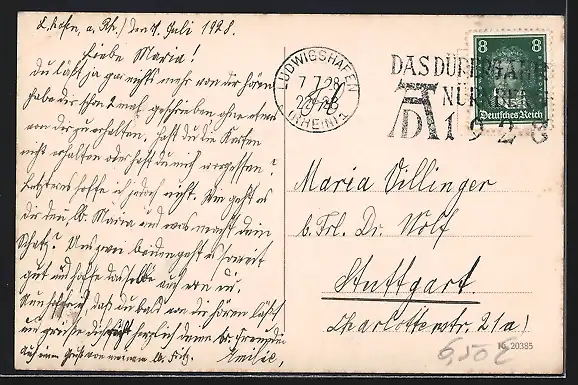 L'hafen, a. Rh., den 7. Juli 1928.
Liebe Maria!
Du läßt ja gar nichts mehr von dir hören,
habe dir schon 2 mal geschrieben ohne etwas
von dir zu erhalten. Hast du die Karten
nicht erhalten oder hast du mich vergessen?
Letzteres hoffe ich jedoch nicht. Wie geht es
dir denn lb. Maria und was macht dein
Schatz? Uns zwei beiden geht es soweit
gut und hoffe dasselbe auch von dir.
Nun hoffe ich, daß du bald von dir hören läßt
und grüße dich herzlich deine lb. Freundin
Auch einen Gruß von meinem lb. Fritz. Emilie,
LUDWIGSHAFEN
7.7.28
(RHEIN)
DAS DÜRERJAHR
NÜRNBERG
AD
1928
8 8
Deutsches Reich
Maria Villinger
b. Frl. Dr. Wolf
Stuttgart.
Charlottenstr. 21a/
16 20385
6,50 €